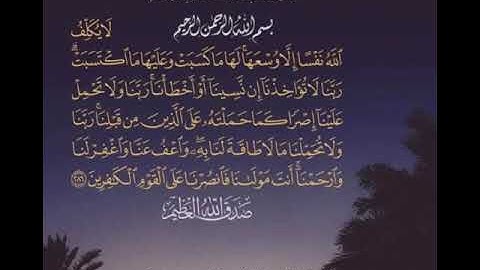 بسم الله الرحمن الرحيم لَا يُكَلِّفُ
ٱللَّهُ نَفْسًا إِلَّا وُسْعَهَا ۚ لَهَا مَا كَسَبَتْ وَعَلَيْهَا مَا ٱكْتَسَبَتْ ۗ
رَبَّنَا لَا تُؤَاخِذْنَآ إِن نَّسِينَآ أَوْ أَخْطَأْنَا ۚ رَبَّنَا وَلَا تَحْمِلْ
عَلَيْنَآ إِصْرًا كَمَا حَمَلْتَهُۥ عَلَى ٱلَّذِينَ مِن قَبْلِنَا ۚ رَبَّنَا
وَلَا تُحَمِّلْنَا مَا لَا طَاقَةَ لَنَا بِهِۦ ۖ وَٱعْفُ عَنَّا وَٱغْفِرْ لَنَا
وَٱرْحَمْنَآ ۚ أَنتَ مَوْلَىٰنَا فَٱنصُرْنَا عَلَى ٱلْقَوْمِ ٱلْكَٰفِرِينَ ٢٨٦
صدق الله العظيم